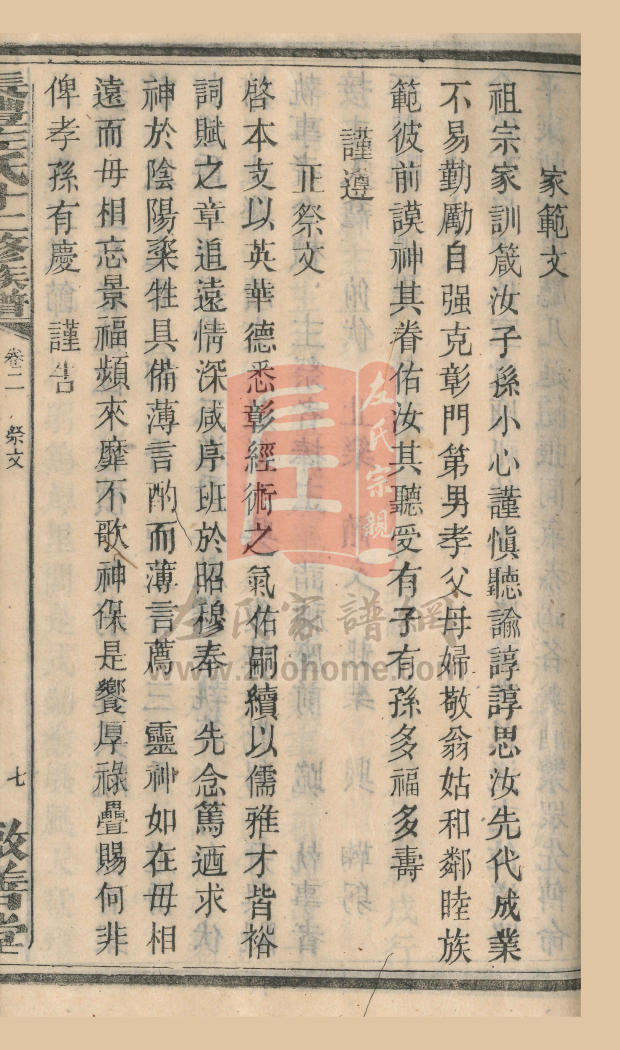 家範文
祖宗家訓箴汝子孫小心謹慎聽諭諄諄思汝先代成業
不易勤勵自强克彰門第男孝父母婦敬翁姑和鄰睦族
範彼前謨神其眷佑汝其聽受有子有孫多福多壽
謹遵
正祭文
啓本支以英華德悉彰經術之氣佑嗣續以儒雅才皆裕
詞賦之章追遠情深咸序班於昭穆奉先念篤逎求伏
神於陰陽粢牲具備薄言酌而薄言薦三靈神如在毋相
遠而毋相忘景福頻來靡不歌神保是饗厚祿疊賜何非
俾孝孫有慶謹告
左氏十二修族譜
卷二
祭文
七
敦善堂
左氏宗親
左氏家譜網
www.zuohome.com